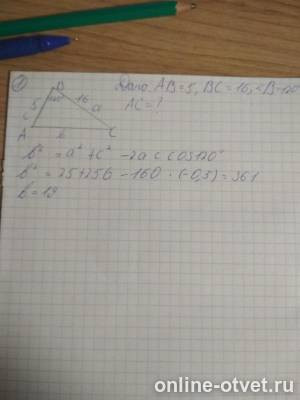 1
Дано: AB=5, BC=16, <B=120°
AC=?
B
120°
5
16
a
c
A
b
C
b² = a² + c² - 2ac cos120°
b² = 25+256 - 160 · (-0,5) = 361
b = 19
online-otvet.ru